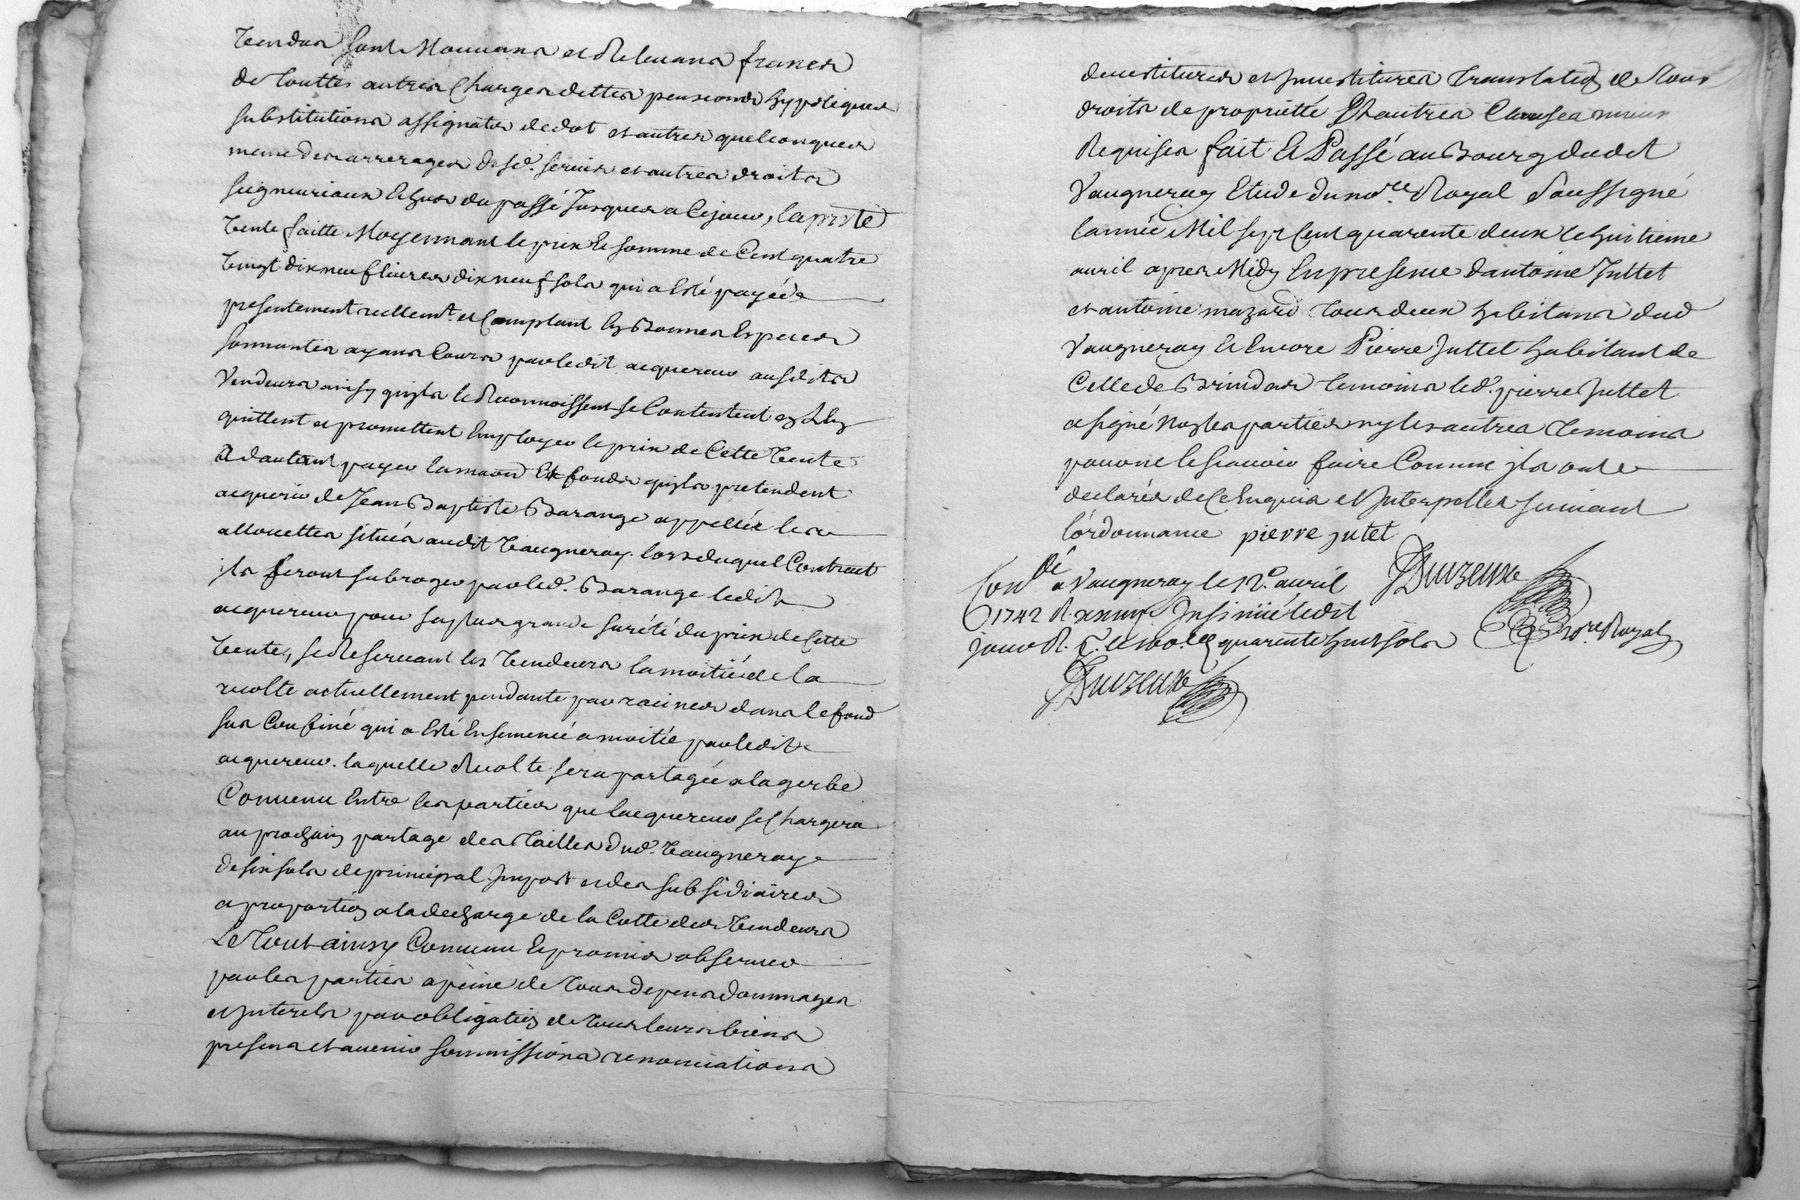 Vendus sont Mouvans et Relevans francs
de touttes autres Charges dettes pensions hypoteques
substitutions assignats de dot et autres quelconques
meme des arrerages de sd. servis et autres droits
seigneuriaux Echus du passé Jusques a Cejour, la pnte
Vente faitte Moyennant le prix et somme de Cent quatre
Vingt dix neuf livres dix neuf sols qui a Esté payée
presentement reellemt. et Comptant En Bonnes Especes
sonnantes ayans Cours par ledit acquereur ausdits
Vendeurs ainsy qu'ils le Reconnoissent se Contentent en
quittent et promettent Employer le prix de Cette Vente
a dautant payer la maison Et fonds qu'ils pretendent
acquerir de Jean Baptiste Barange appellée les
allouettes situés audit Vaugneray. lors duquel Contract
ils feront subroger par led. Barange ledit
acquereur pour sa plus grande sureté du prix de Cette
Vente, se Reservant les Vendeurs la moitié de la
recolte actuellement pendante par racines dans le fond
sus Confiné qui a Esté Ensemencé a moitié par ledit
acquereur. laquelle Recolte sera partagée a la gerbe
Convenu Entre les parties que lacquereur se Chargera
au prochain partage des Tailles dud. Vaugneray
de six sols de principal Impost et des subsidiaires
a proportion a la decharge de la Cotte des Vendeurs
Le Tout ainsy Convenu Et promis observer
par les parties a peine de tous depens dommages
et Interets par obligation de tous leurs biens
presens et avenir sommissions renonciations
devestitures et Investitures Translation de tous
droits de proprietté Et autres Clauses mieux
Requises fait Et Passé au Bourg dudit
Vaugneray Etude du nore. Royal Soussigné
lannée Mil sept Cent quarente deux le huitieme
avril apres Midy En presence dantoine Juttet
et antoine mazard tous deux habitans dud
Vaugneray et Encore Pierre Juttet habitant de
Celle de Brindas temoins led. pierre Juttet
a signé Non les parties ny les autres temoins
pour ne le sçavoir faire Comme ils ont
declarés de Ce Enquis et Interpellés suivant
l'ordonnance pierre jutet
Conllé a Vaugneray le 12e. avril
1742 R. Insinué ledit
jour R. quarente huit sols nore. Royal